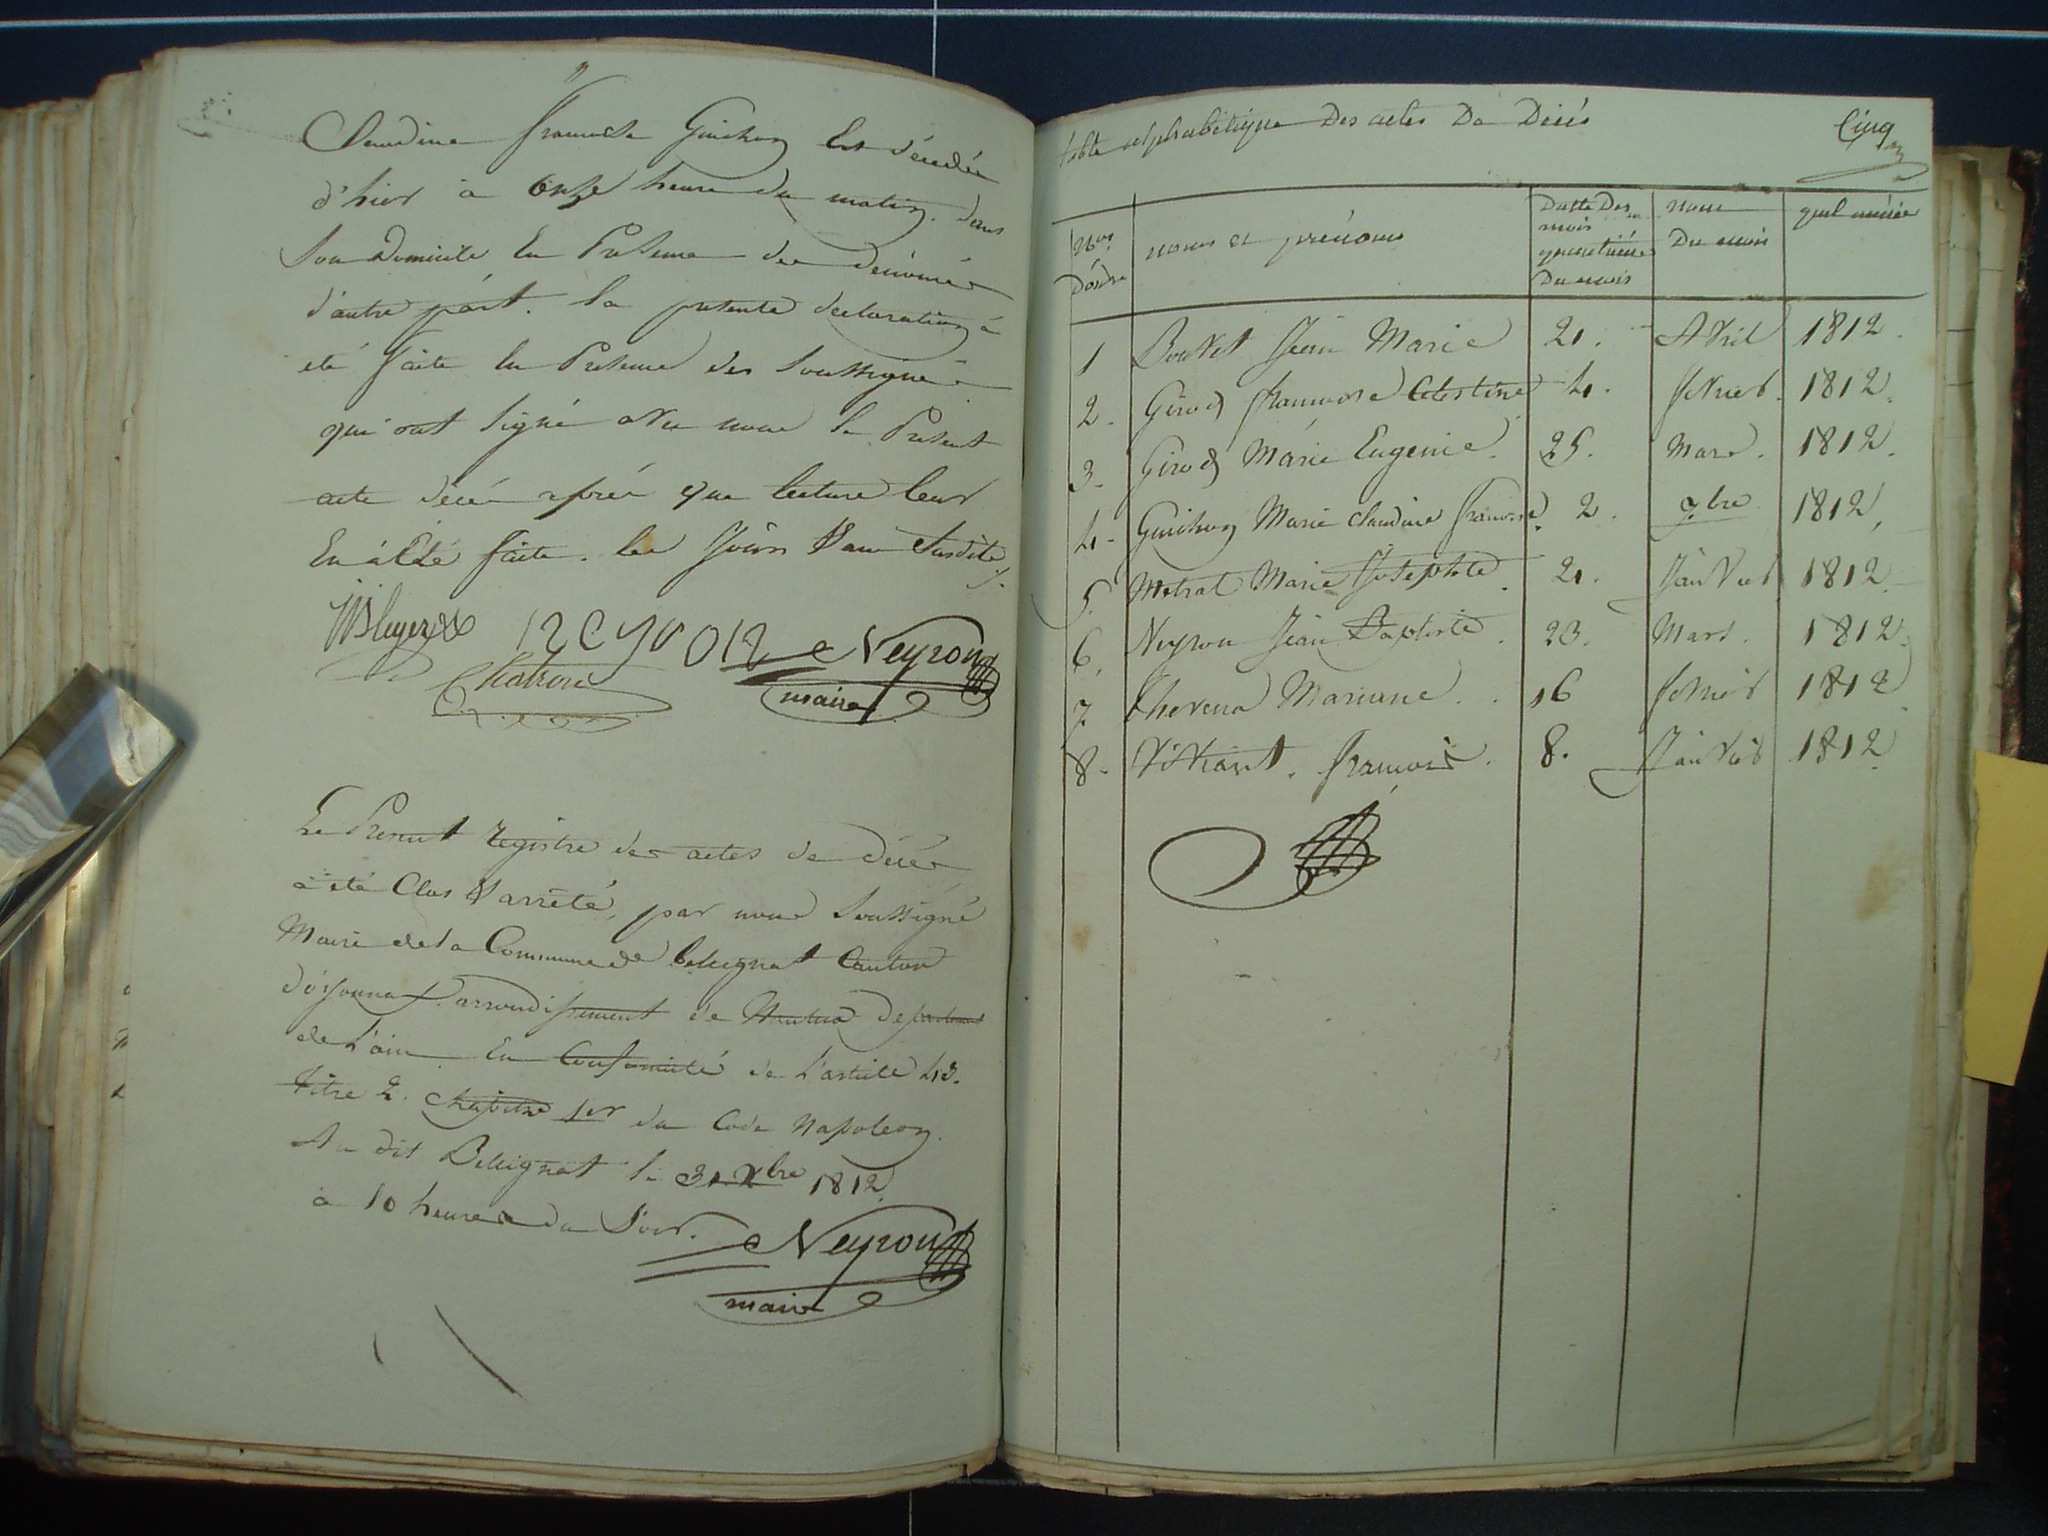 Claudine francoise Guichon Est décedée
d'hier à Onze heure du matin. dans
Son Domicile En Présence des dénomés
d'autre part. la présente declaration à
été faite En Présence des Soussignés
qui ont Signé avec nous le Présent
acte décés aprés que lecture leur
En à Eté faite. les Jours & an Susdite
Neyron
Chatron
maire
Le Présent Registre des actes de Décés
à été Clos & arrêté, par nous Soussigné
Maire de la Commune de bellignat Canton
d'oyonnax arrondissement de Nantua Departement
de l'ain En Conformité de l'article 43.
titre 2. chapitre 1er du Code Napoleon.
Au dit Bellignat le 31 Xbre 1812
à 10 heures du Soir.
Neyron
maire
table alphabétique Des actes De Décés
Cinq
Nos D'ordre
noms et prénoms
Datte Des mois quantième Du mois
nom Du mois
quel année
1 Bouvet Jean Marie 21. Avril 1812.
2. Girod francoise Celestine 4. fevrier. 1812.
3. Girod Marie Eugenie. 25. Mars. 1812.
4. Guichon Marie Claudine francoise. 2. 7bre 1812.
5. Metral Marie Josephte. 21. Janvier 1812
6. Neyron Jean Baptiste. 23. Mars. 1812.
7. thevena Marianne. 16 fevrier 1812
8. Viviant. francois. 8. Janvier 1812.